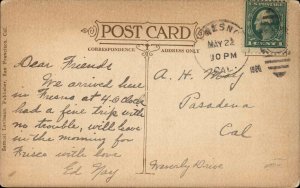 POST CARD
CORRESPONDENCE
ADDRESS ONLY
FRESNO
MAY 22
10 PM
CAL.
Dear Friends
We arrived here
in Fresno at 4 Oclock
had a fine trip with
no trouble, will leave
in the morning for
Frisco with love
Ed
A. H.
Pasadena
Cal
Waverly Drive